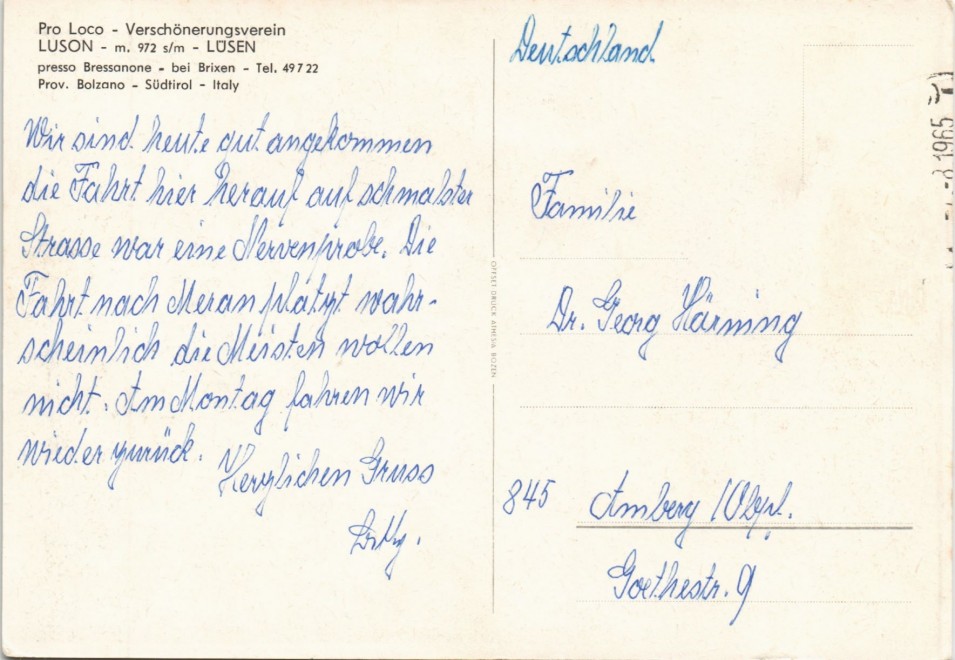 Pro Loco - Verschönerungsverein
LUSON - m. 972 s/m - LÜSEN
presso Bressanone - bei Brixen - Tel. 49722
Prov. Bolzano - Südtirol - Italy
Wir sind heute gut angekommen
die Fahrt hier herauf auf schmalster
Strasse war eine Nervenprobe. Die
Fahrt nach Meran platzt wahr-
scheinlich die Meisten wollen
nicht. Am Montag fahren wir
wieder zurück.
Herzlichen Gruss
OFFSET DRUCK ATHESIA BOZEN
Deutschland
Familie
Dr. Georg Härning
845 Amberg/Obpf.
Goethestr. 9
8 1965